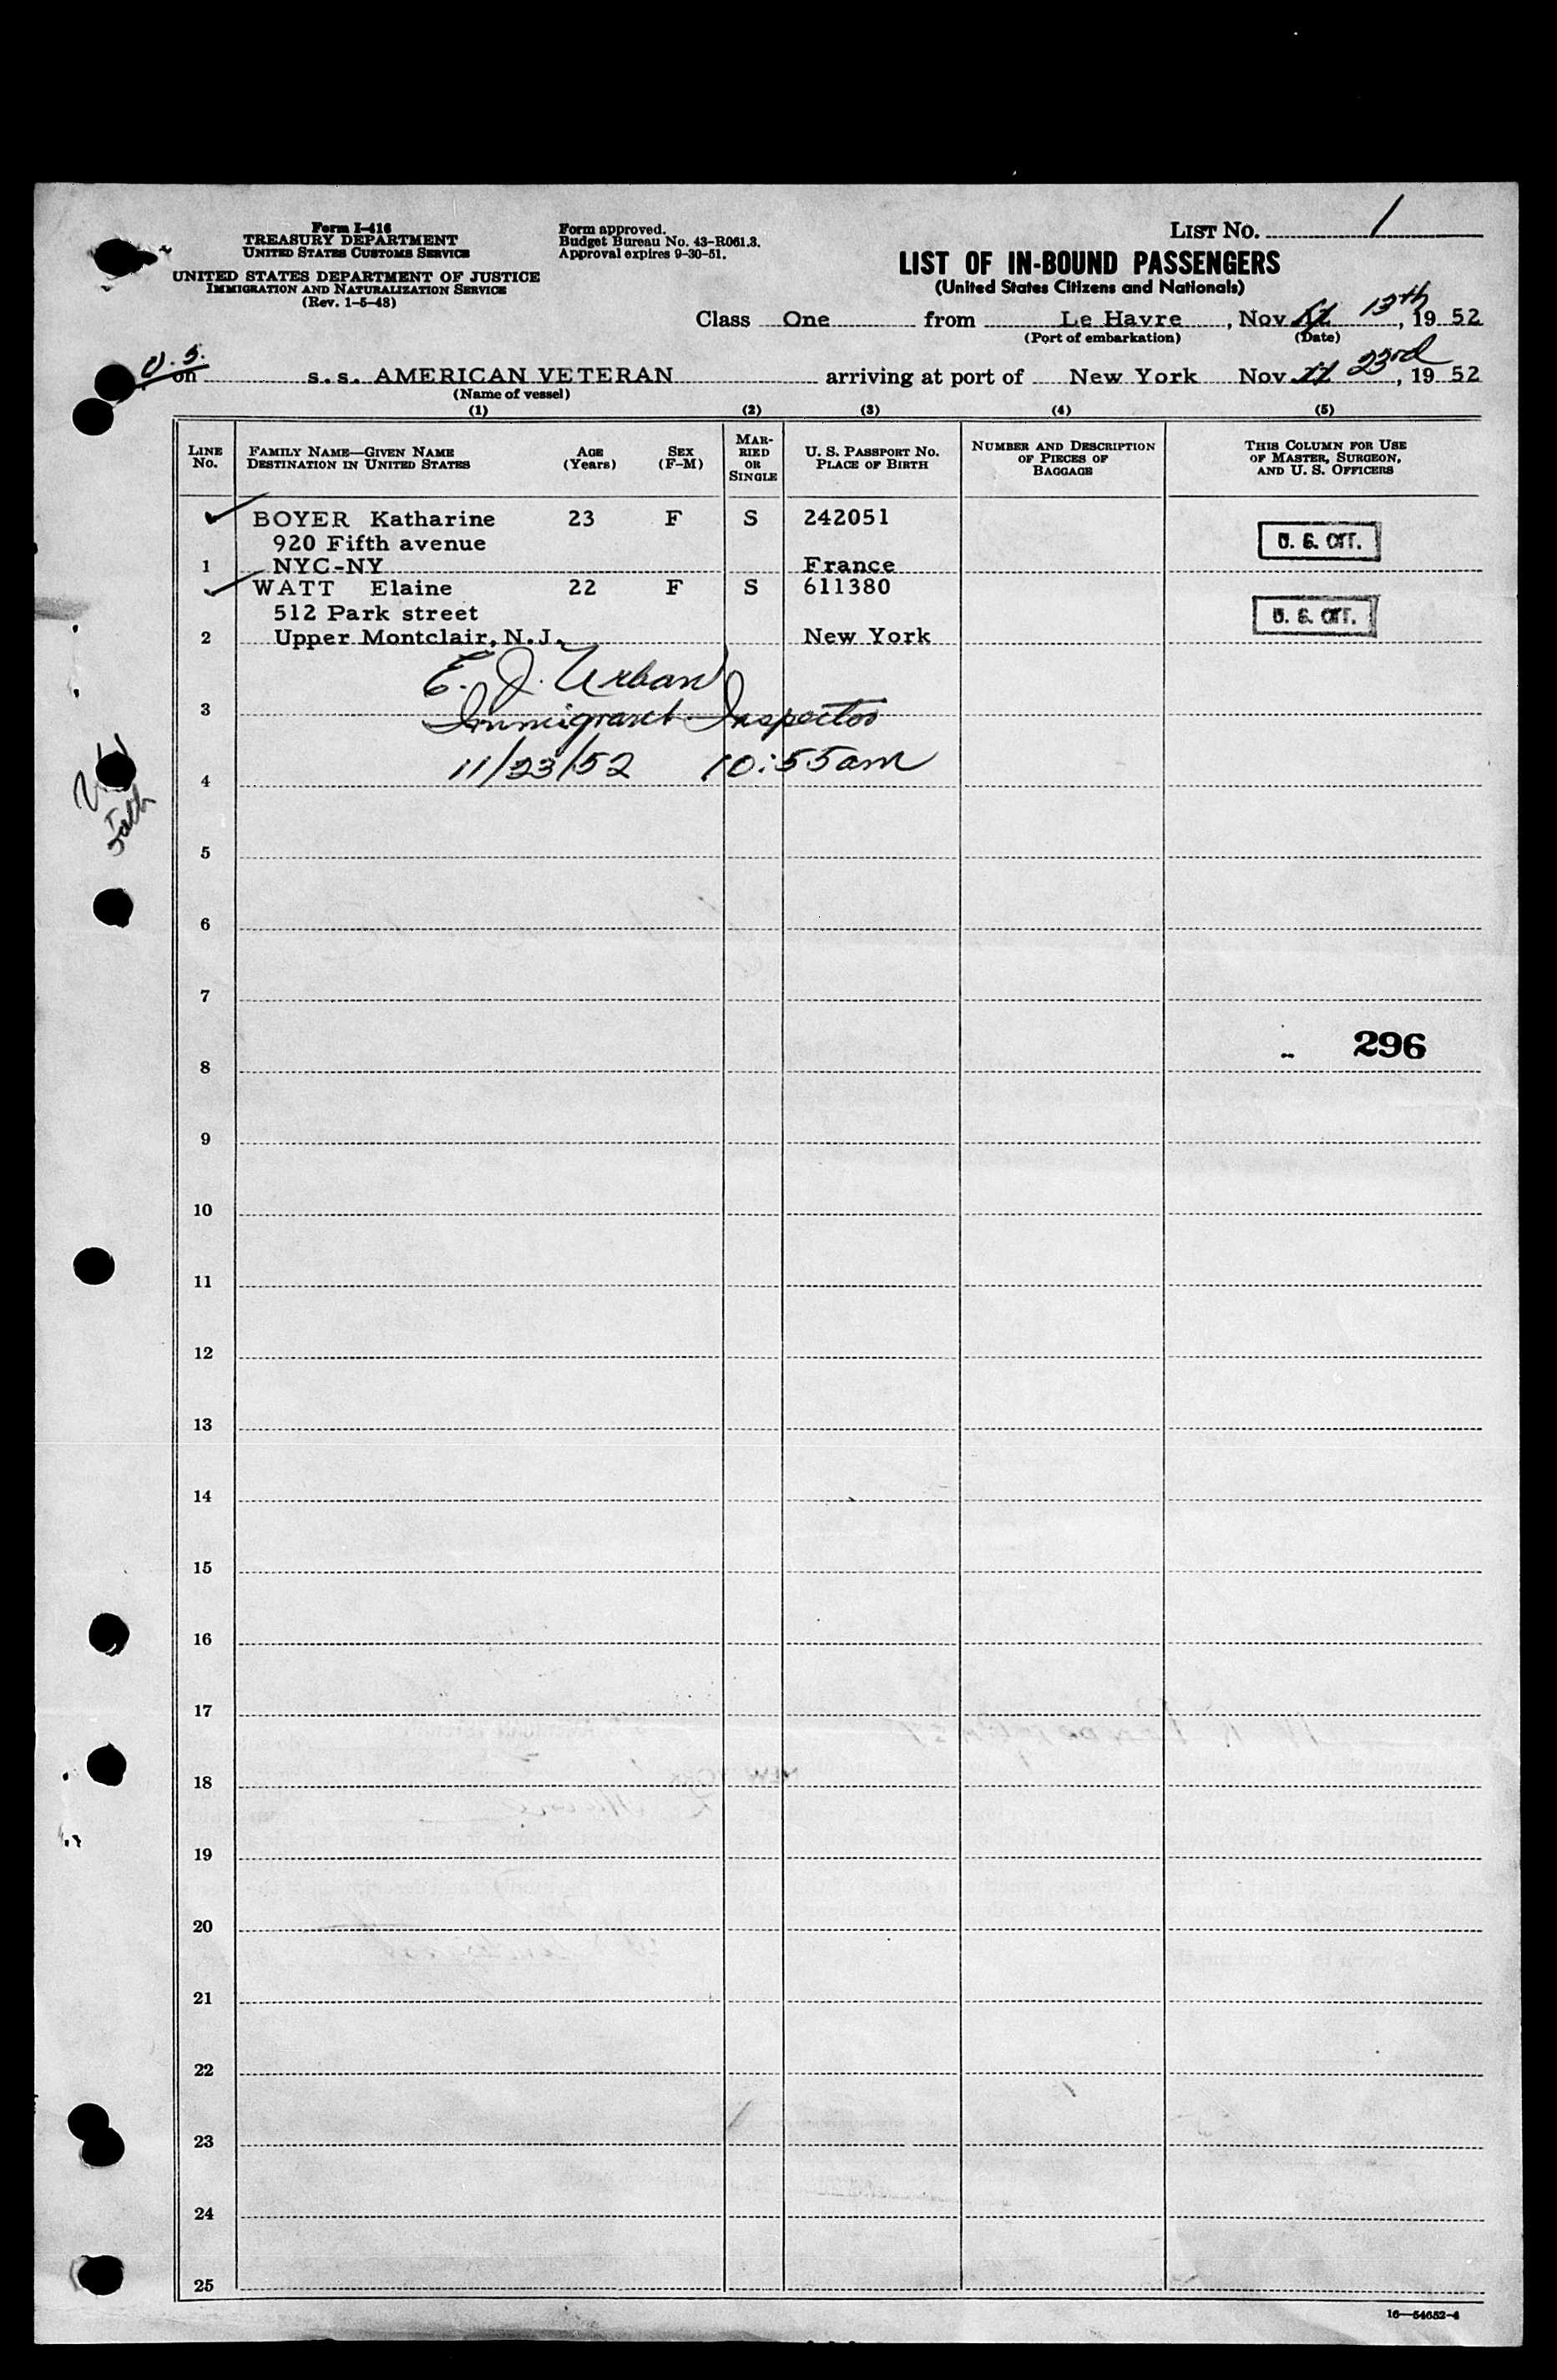 Form I-416
TREASURY DEPARTMENT
UNITED STATES CUSTOMS SERVICE
UNITED STATES DEPARTMENT OF JUSTICE
IMMIGRATION AND NATURALIZATION SERVICE
(Rev. 1-5-48)
Form approved.
Budget Bureau No. 43-R061.3.
Approval expires 9-30-51.
LIST NO. 1
LIST OF IN-BOUND PASSENGERS
(United States Citizens and Nationals)
Class One from Le Havre, Nov 13th, 19 52
(Port of embarkation) (Date)
U.S.
on s.s. AMERICAN VETERAN arriving at port of New York Nov 23rd, 19 52
(Name of vessel)
(1) (2) (3) (4) (5)
LINE NO. FAMILY NAME—GIVEN NAME DESTINATION IN UNITED STATES AGE (Years) SEX (F-M) MARRIED OR SINGLE U. S. PASSPORT NO. PLACE OF BIRTH NUMBER AND DESCRIPTION OF PIECES OF BAGGAGE THIS COLUMN FOR USE OF MASTER, SURGEON, AND U. S. OFFICERS
BOYER Katharine 23 F S 242051
920 Fifth avenue U. S. CIT.
1 NYC-NY France
WATT Elaine 22 F S 611380
512 Park street U. S. CIT.
2 Upper Montclair, N.J. New York
E. J. Urban
3 Immigrant Inspector
4 11/23/52 10:55am
5
6
7
296
8
9
10
11
12
13
14
15
16
17
18
19
20
21
22
23
24
25
16—54652-4